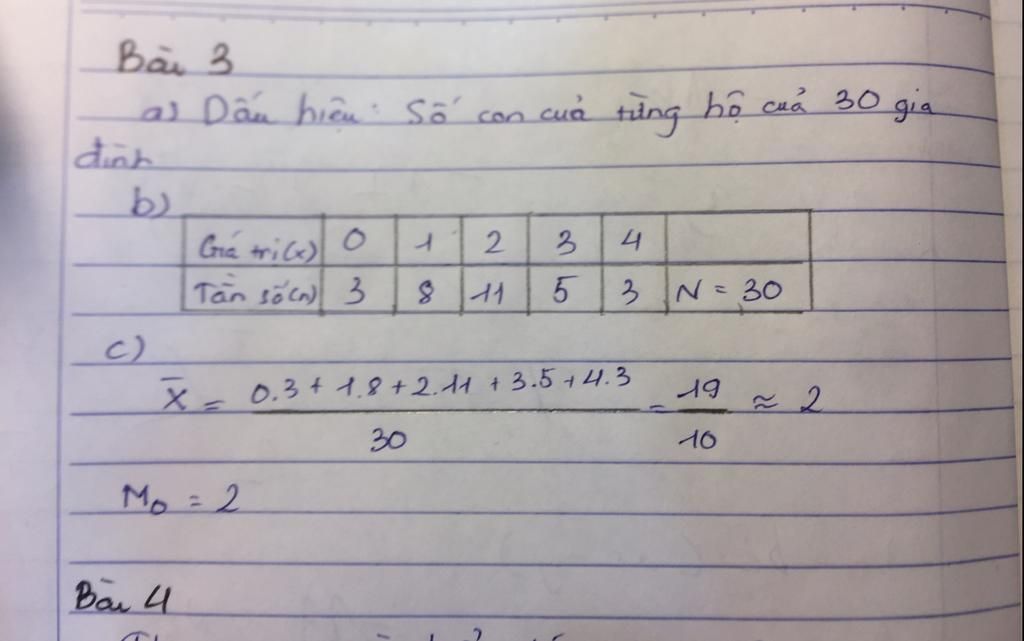 Bài 3
a) Dấu hiệu: Số con cuả từng hộ cuả 30 gia
đình
b)
Giá trị(x) 0 1 2 3 4
Tần số(n) 3 8 11 5 3 N = 30
c)
X̄ = (0.3 + 1.8 + 2.11 + 3.5 + 4.3)/30 = 19/10 ≈ 2
M₀ = 2
Bài 4